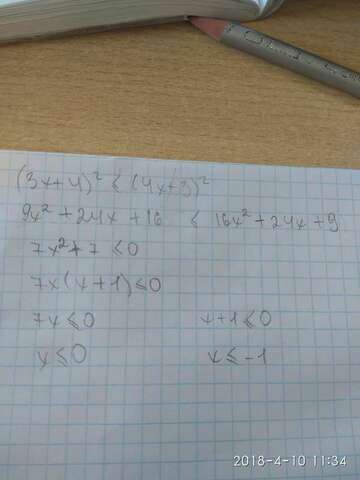 (3x+4)² ≤ (4x+3)²
9x² + 24x + 16 ≤ 16x² + 24x + 9
7x² + 7 ≤ 0
7x(x+1) ≤ 0
7x ≤ 0 x+1 ≤ 0
x ≤ 0 x ≤ -1
2018-4-10 11:34